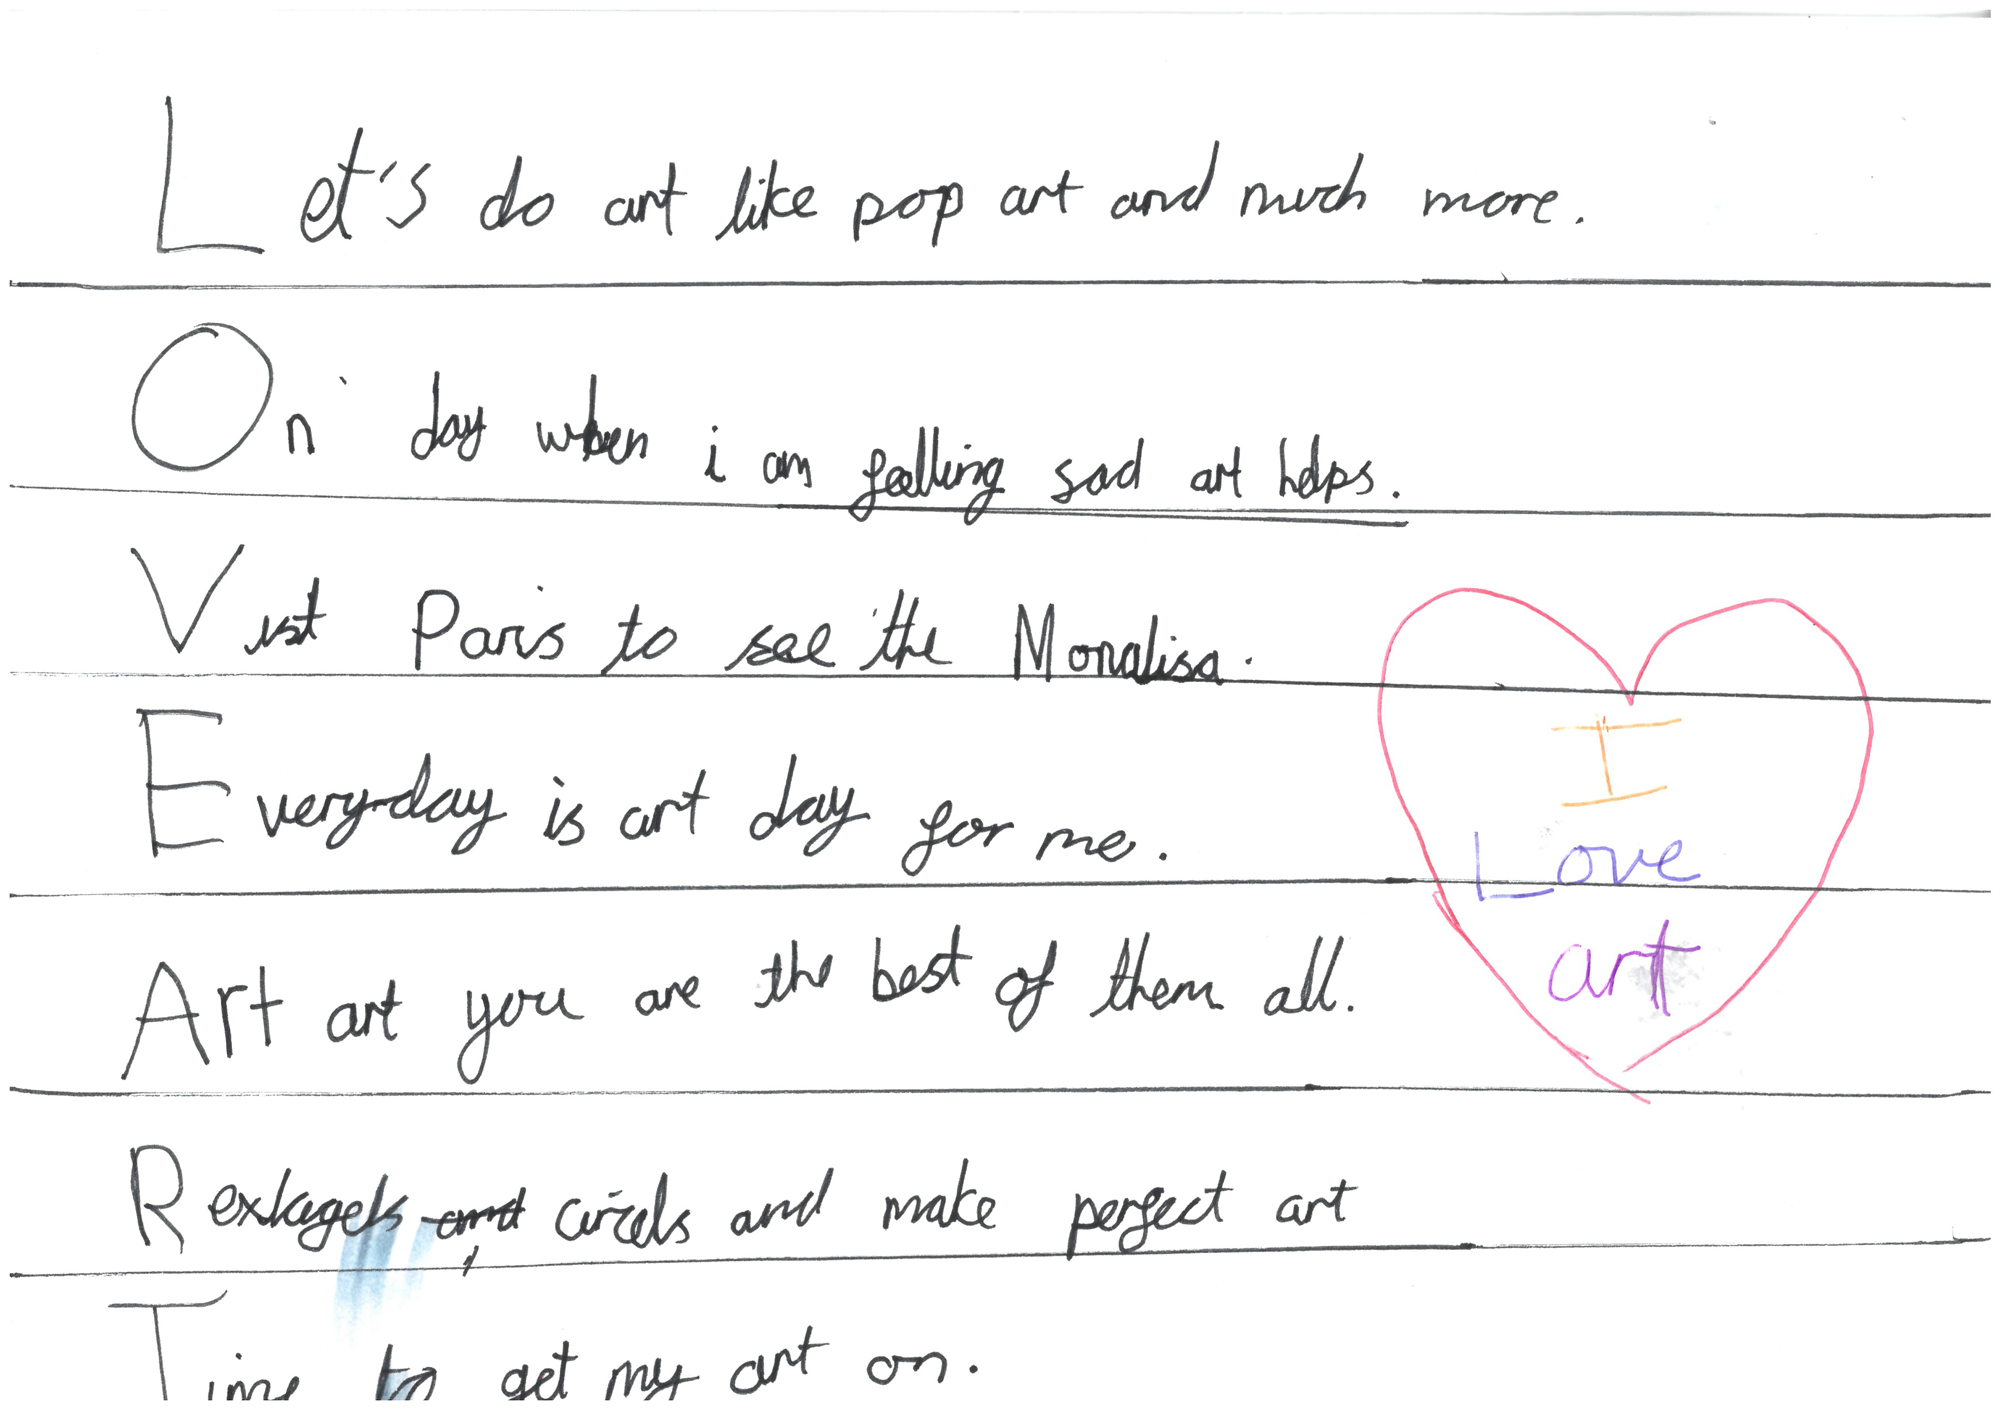 Let's do art like pop art and much more.
On day when i am feelling sad art helps.
Vist Paris to see the Monalisa.
Every-day is art day for me.
Art art you are the best of them all.
Rextagels and , circels and make perfect art
Time to get my art on.
I
Love
art